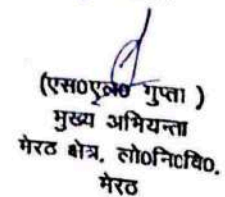 (एस0एल0 गुप्ता )
मुख्य अभियन्ता
मेरठ क्षेत्र, लो0नि0वि0.
मेरठ